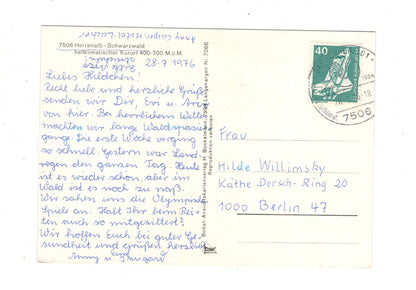 Anny Luiger Hotel Lacher
7506 Herrenalb - Schwarzwald
heilklimatischer Kurort 400-700 M.ü.M.
28.7.1976
Liebes Hildchen!
Recht liebe und herzliche Grüße
senden wir Dir, Evi u.
von hier. Bei herrlichem Wetter
machten wir lange Waldspazier
gänge. Die erste Woche verging
so schnell. Gestern war Land-
regen den ganzen Tag. Heute
ist es wieder schön, aber im
Wald ist es noch zu naß.
Wir sahen uns die Olympia
Spiele an. Hast Ihr beim Rei-
ten auch so mitgezittert?
Wir hoffen Euch bei guter Ge-
sundheit und grüßen herzlich
Anny u.
Boden-Ansichtskartenverlag H. Bockelmann, 7994 Langenargen Nr. 7066
Reproduktion verboten
40
7506
Frau
Hilde Willimsky
Käthe Dorsch-Ring 20
1000 Berlin 47